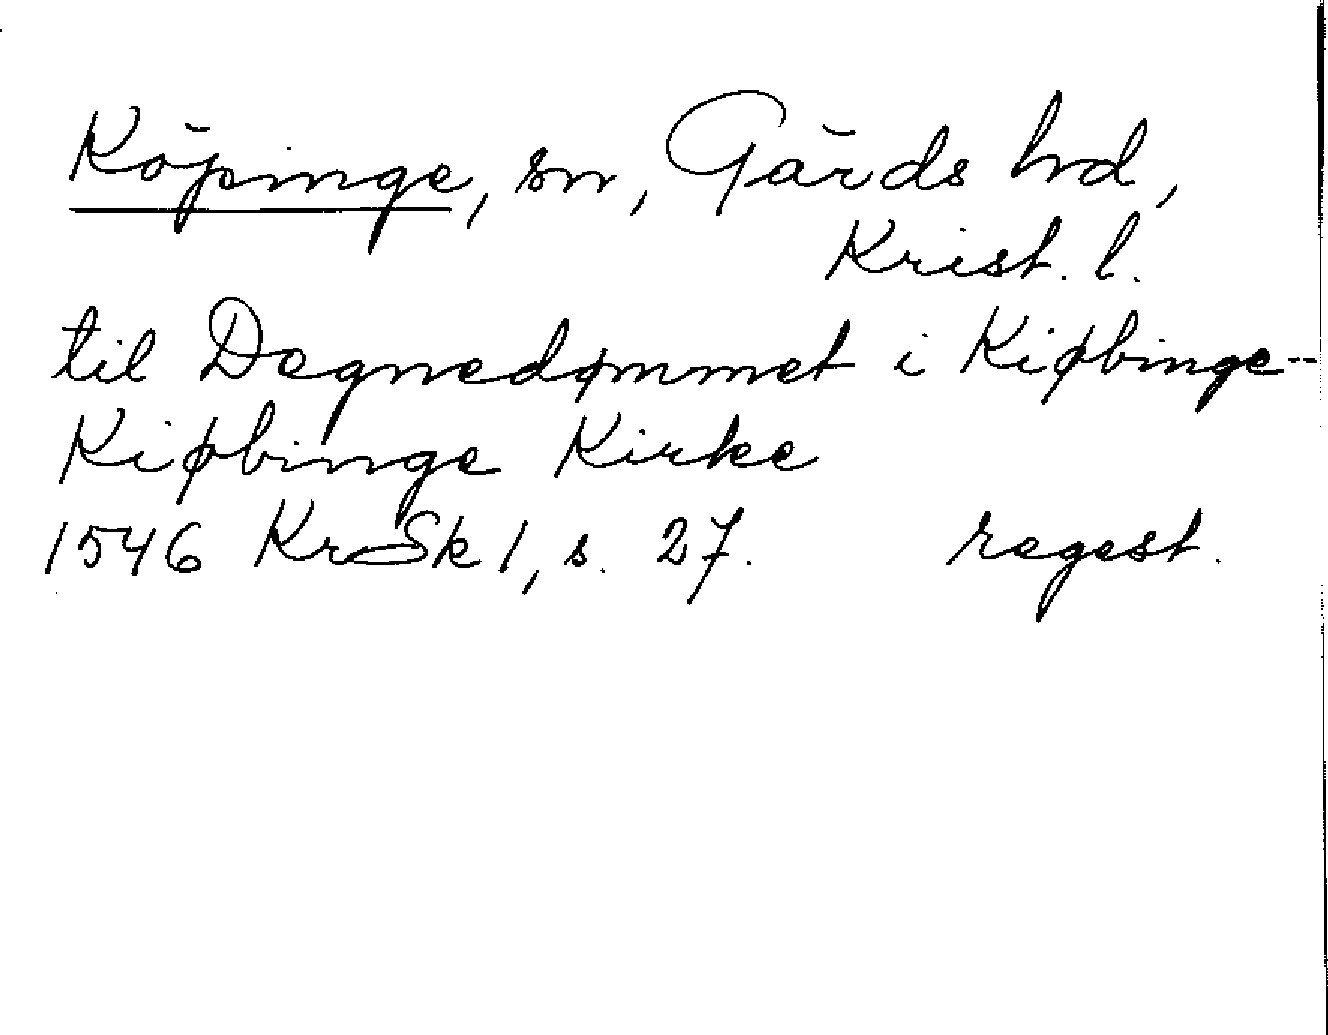 Köpinge, sn, Gärds hd,
Krist. l.
til Degnedømmet i Kiøbinge--
Kiøbinge Kirke
1546 KrSk 1, s. 27. regest.